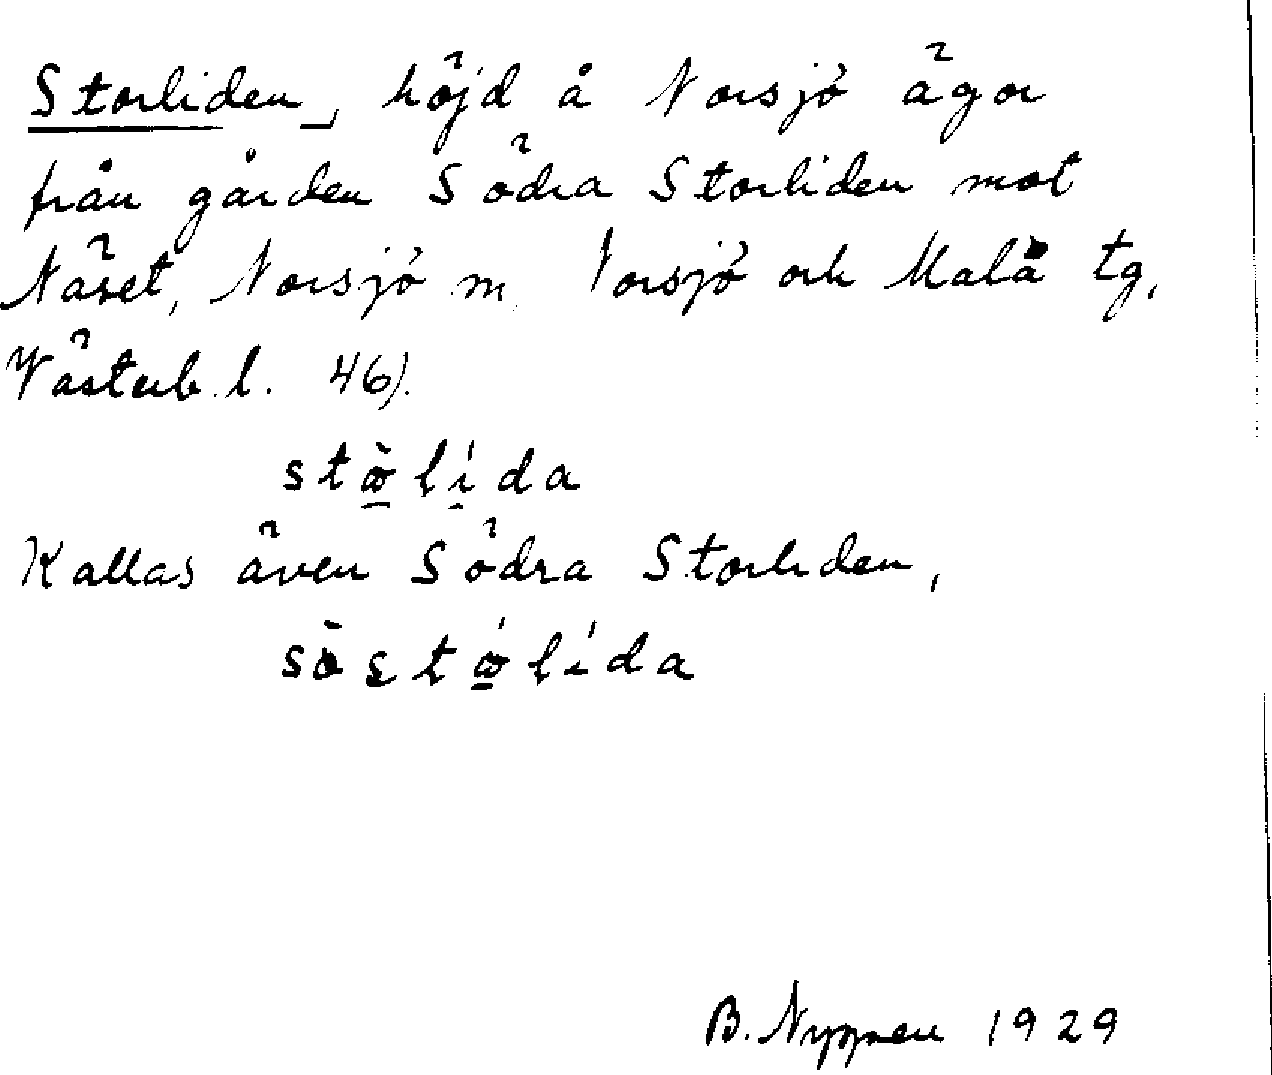 Storliden, höjd å Norsjö ägor
från gården Södra Storliden mot
Näset, Norsjö m. Norsjö och Malå tg,
Västerb. l. 46).
Kallas även Södra Storliden,
B. 1929